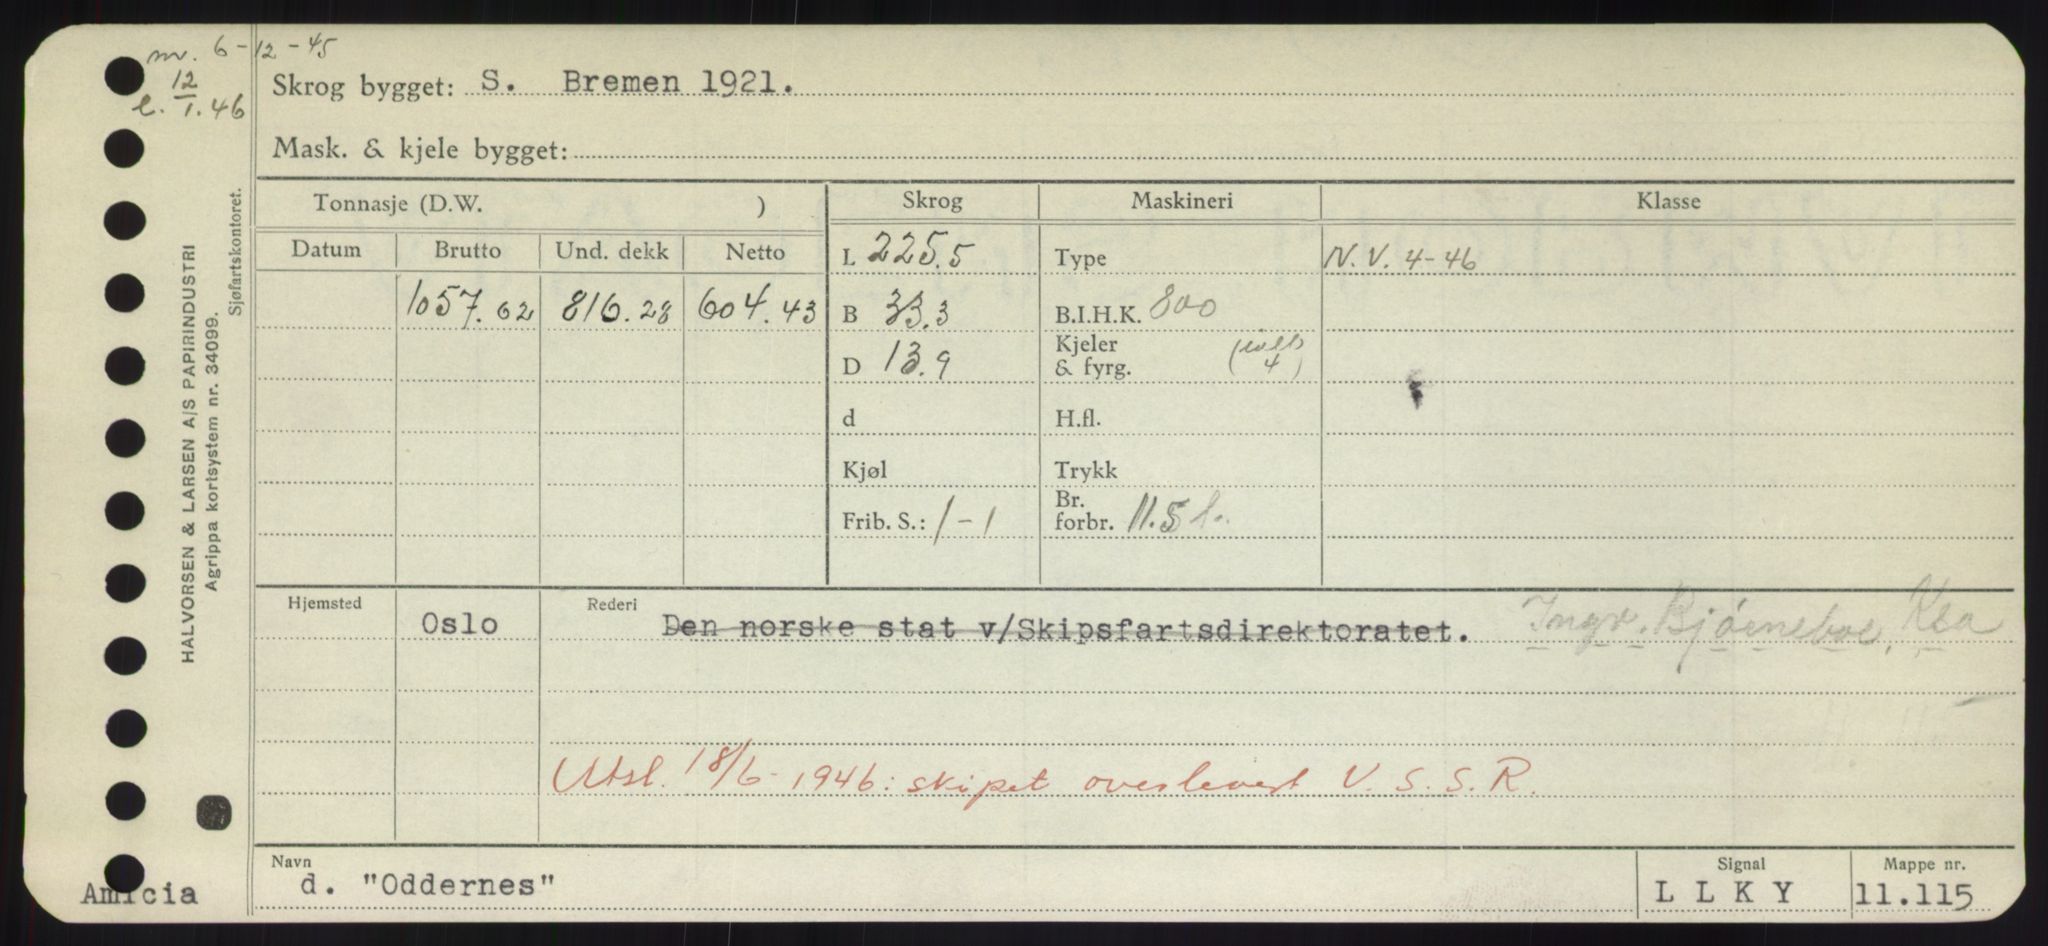 nv. 6-12-45
l. 12/1.46
Skrog bygget: S. Bremen 1921.
Mask. & kjele bygget:
Tonnasje (D.W. )
Skrog
Maskineri
Klasse
Datum
Brutto
Und. dekk
Netto
L 225.5
Type
N.V. 4-46
1057.62
816.28
604.43
B 33.3
B.I.H.K. 800
D 13.9
Kjeler & fyrg. 4
d
H.fl.
Kjøl
Trykk
Frib. S.: 1-1
Br. forbr. 11.5 t.
Hjemsted
Oslo
Rederi
Den norske stat v/Skipsfartsdirektoratet.
Ingv. Bjørneboe, Ksa
Utsl. 18/6-1946: skipet overlevert U.S.S.R.
Navn
d. "Oddernes"
Signal
L L K Y
Mappe nr.
11.115
Amicia
HALVORSEN & LARSEN A/S PAPIRINDUSTRI
Agrippa kortsystem nr. 34099.
Sjøfartskontoret.